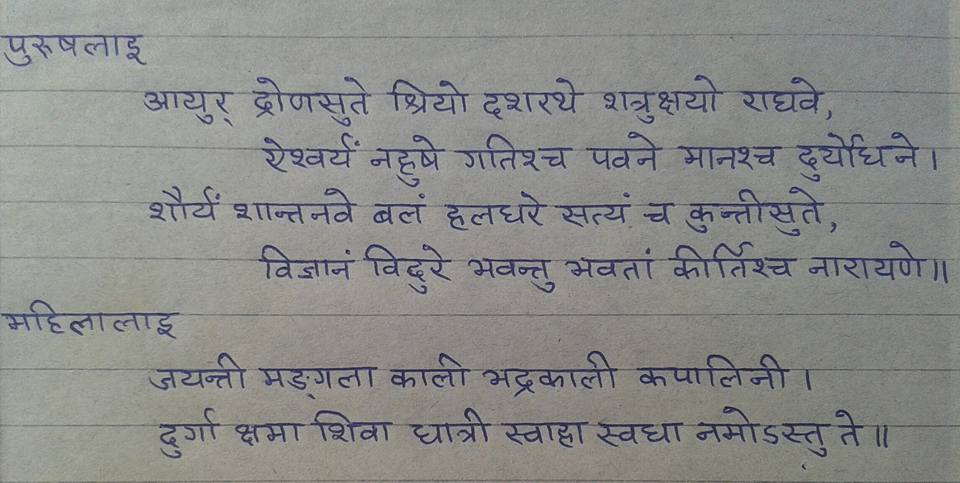 पुरुषलाइ
आयुर् द्रोणसुते श्रियो दशरथे शत्रुक्षयो राघवे,
ऐश्वर्यं नहुषे गतिश्च पवने मानश्च दुर्योधने।
शौर्यं शान्तनवे बलं हलधरे सत्यं च कुन्तीसुते,
विज्ञानं विदुरे भवन्तु भवतां कीर्तिश्च नारायणे॥
महिलालाइ
जयन्ती मङ्गला काली भद्रकाली कपालिनी।
दुर्गा क्षमा शिवा धात्री स्वाहा स्वधा नमोऽस्तु ते॥